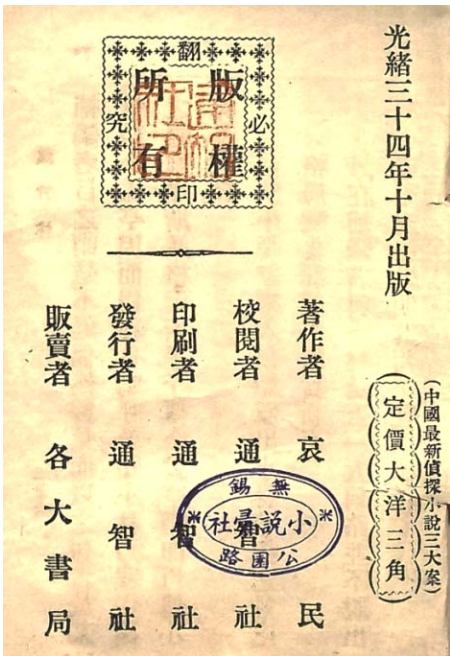 光緒三十四年十月出版
（中國最新偵探小說三大案）
定價大洋三角
版權所有
翻印必究
著作者 哀民
校閱者 通智社
印刷者 通智社
發行者 通智社
販賣者 各大書局
無錫
小說社
公園路